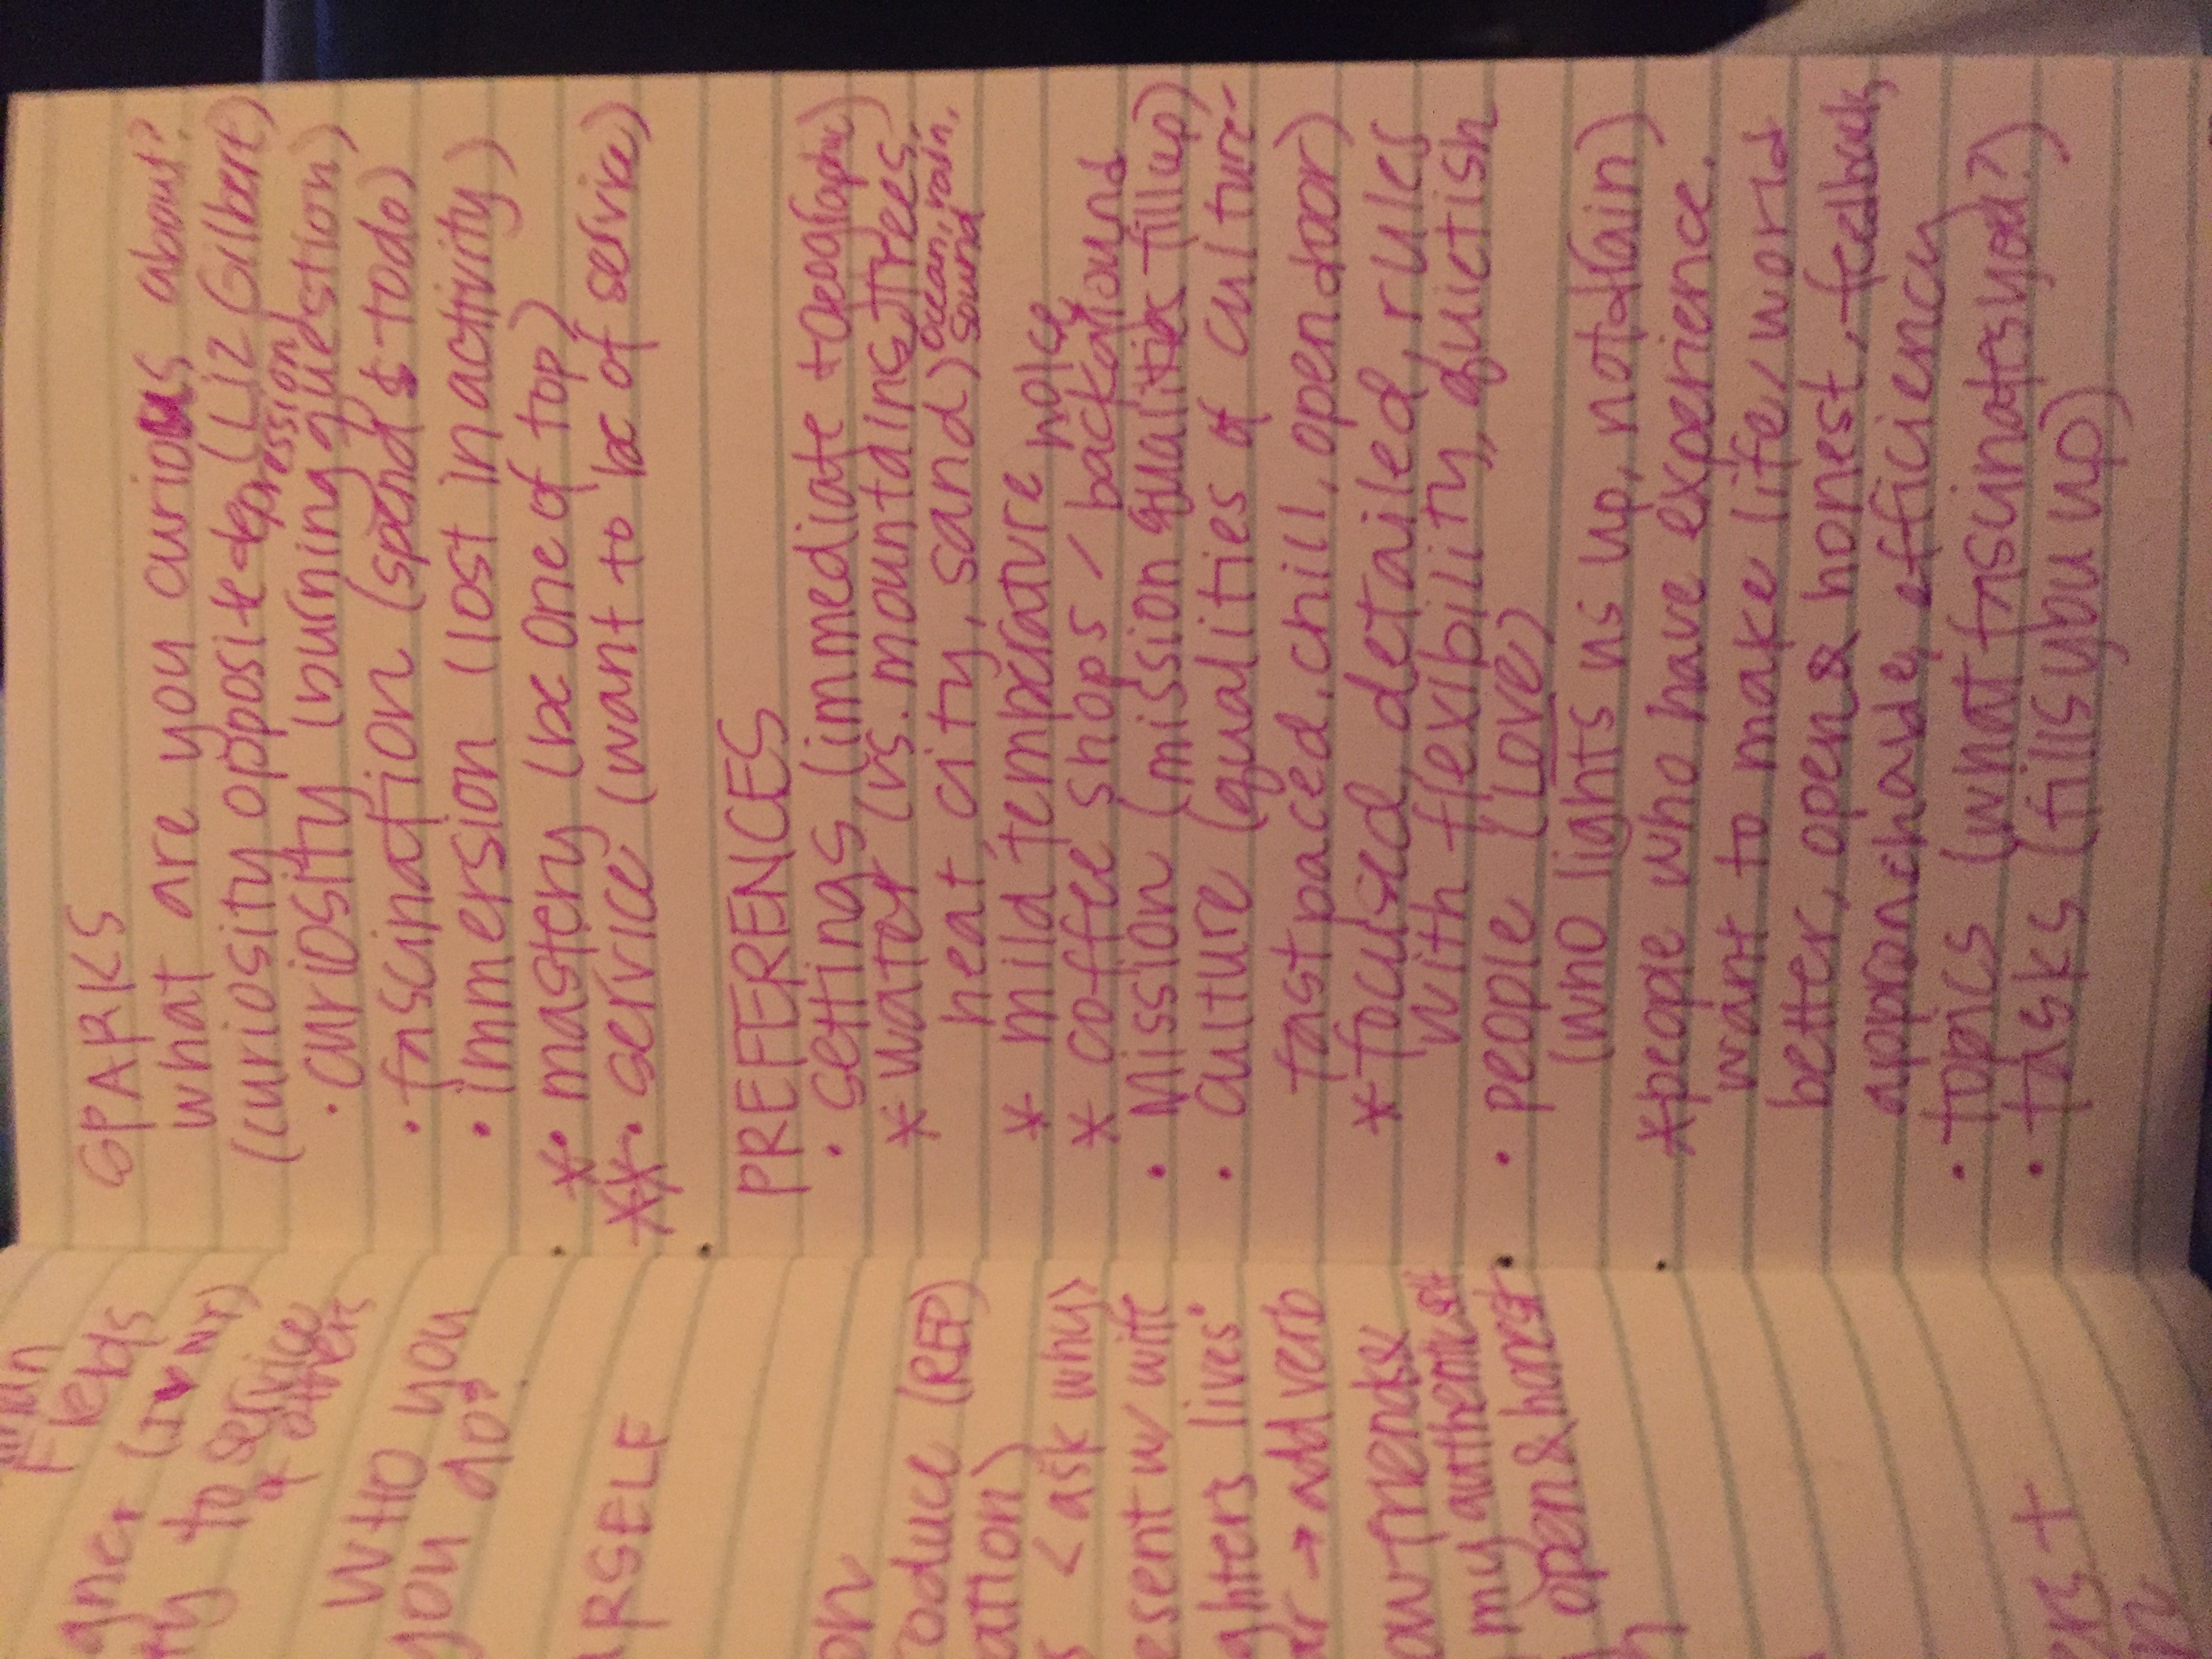 Fields
(I ♥ NY)
to service
& others
WHO you
you do?
RSELF
on
oduce (REP)
ation)
s <ask why>
esent w/ wife
ghter's lives"
ar → add verb
ow friends &
my authentic self
open & honest
ers +
n
SPARKS
what are you curious about?
(curiosity opposite depression) (Liz Gilbert)
• curiosity (burning question)
• fascination (spend $ to do)
• immersion (lost in activity)
*• mastery (be one of top)
**• service (want to be of service)
PREFERENCES
• settings (immediate + geographic)
* water (vs. mountains, trees,
heat, city, sand) ocean, rain, sound
* mild temperature
* coffee shops / background noise
• Mission (mission qualities fill up)
• culture (qualities of culture-
fast paced, chill, open door)
* focused, detailed, rules
with flexibility, quietish
• people (LOVE)
(who lights us up, not drain)
*people who have experience.
want to make life/world
better, open & honest, feedback,
approachable, efficiency
• topics (what fascinates you?)
• tasks (fills you up)